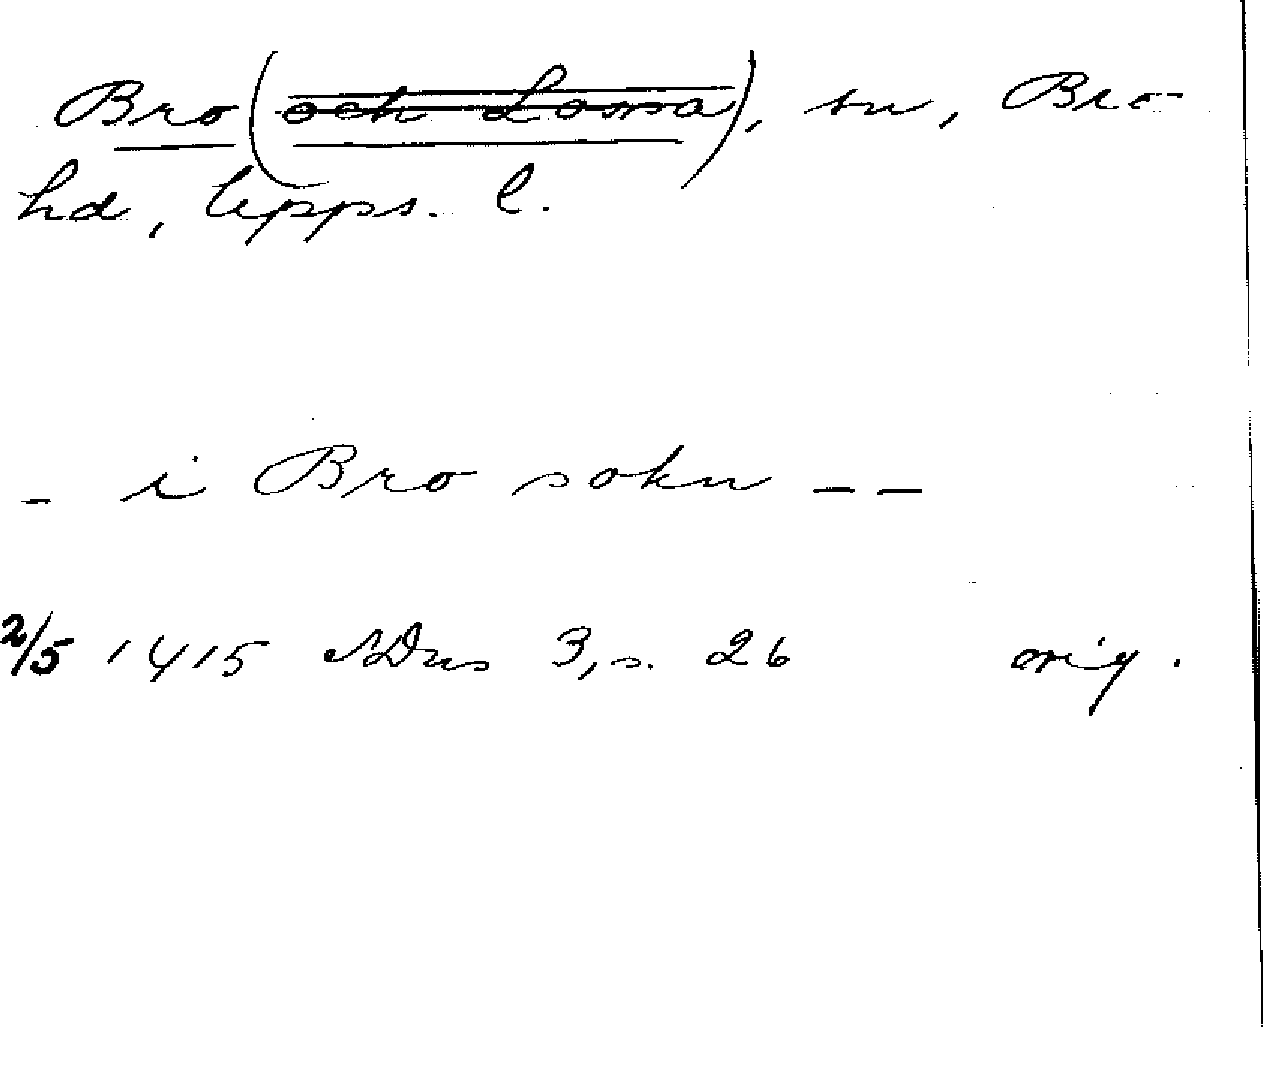 Bro (och Lossa), sn, Bro
hd, Upps. l.
- i Bro sokn - -
2/5 1415 SDns 3, s. 26 orig.